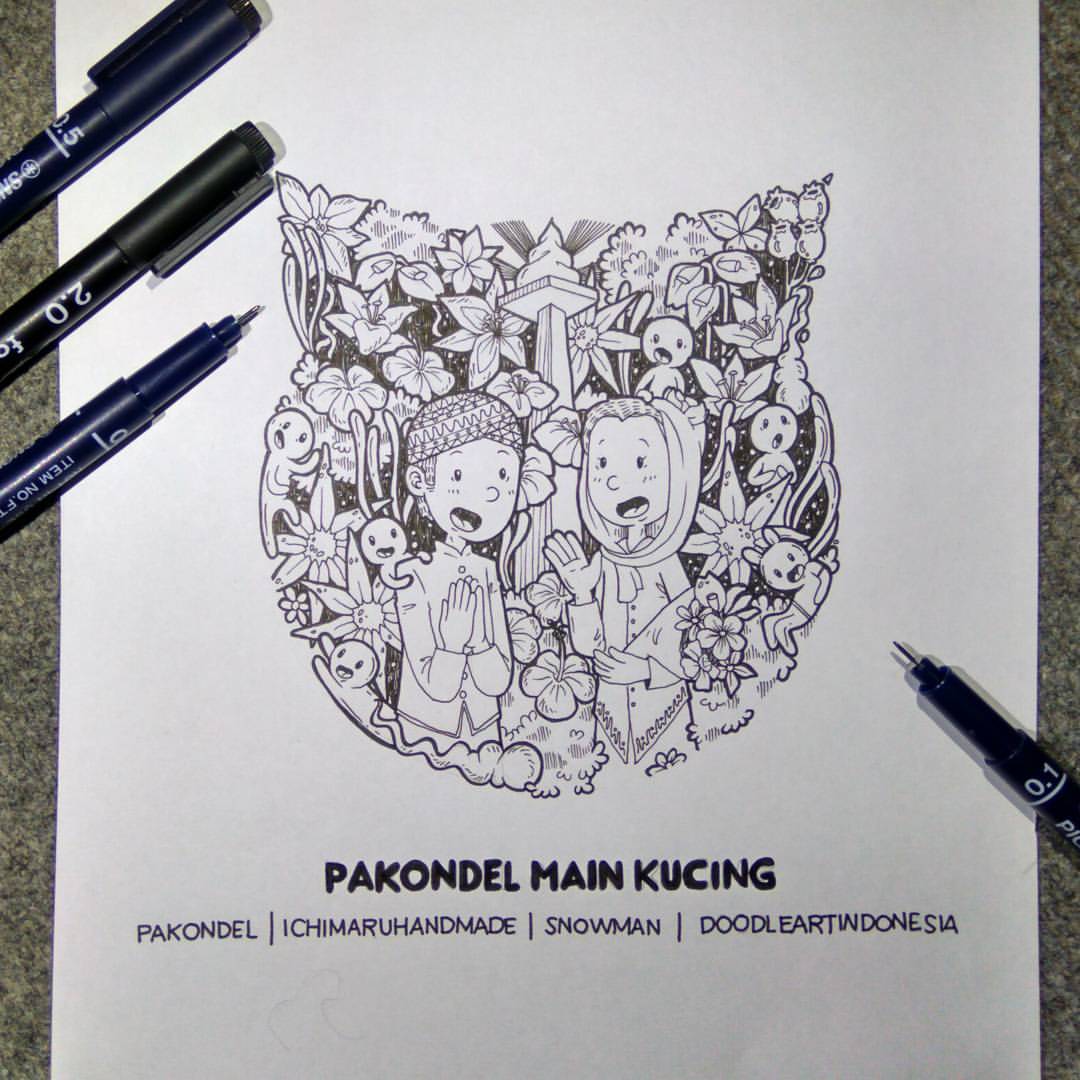 0.5
SN
2.0
ITEM NO.FT
0.1
PIG
PAKONDEL MAIN KUCING
PAKONDEL | ICHIMARUHANDMADE | SNOWMAN | DOODLEARTINDONESIA